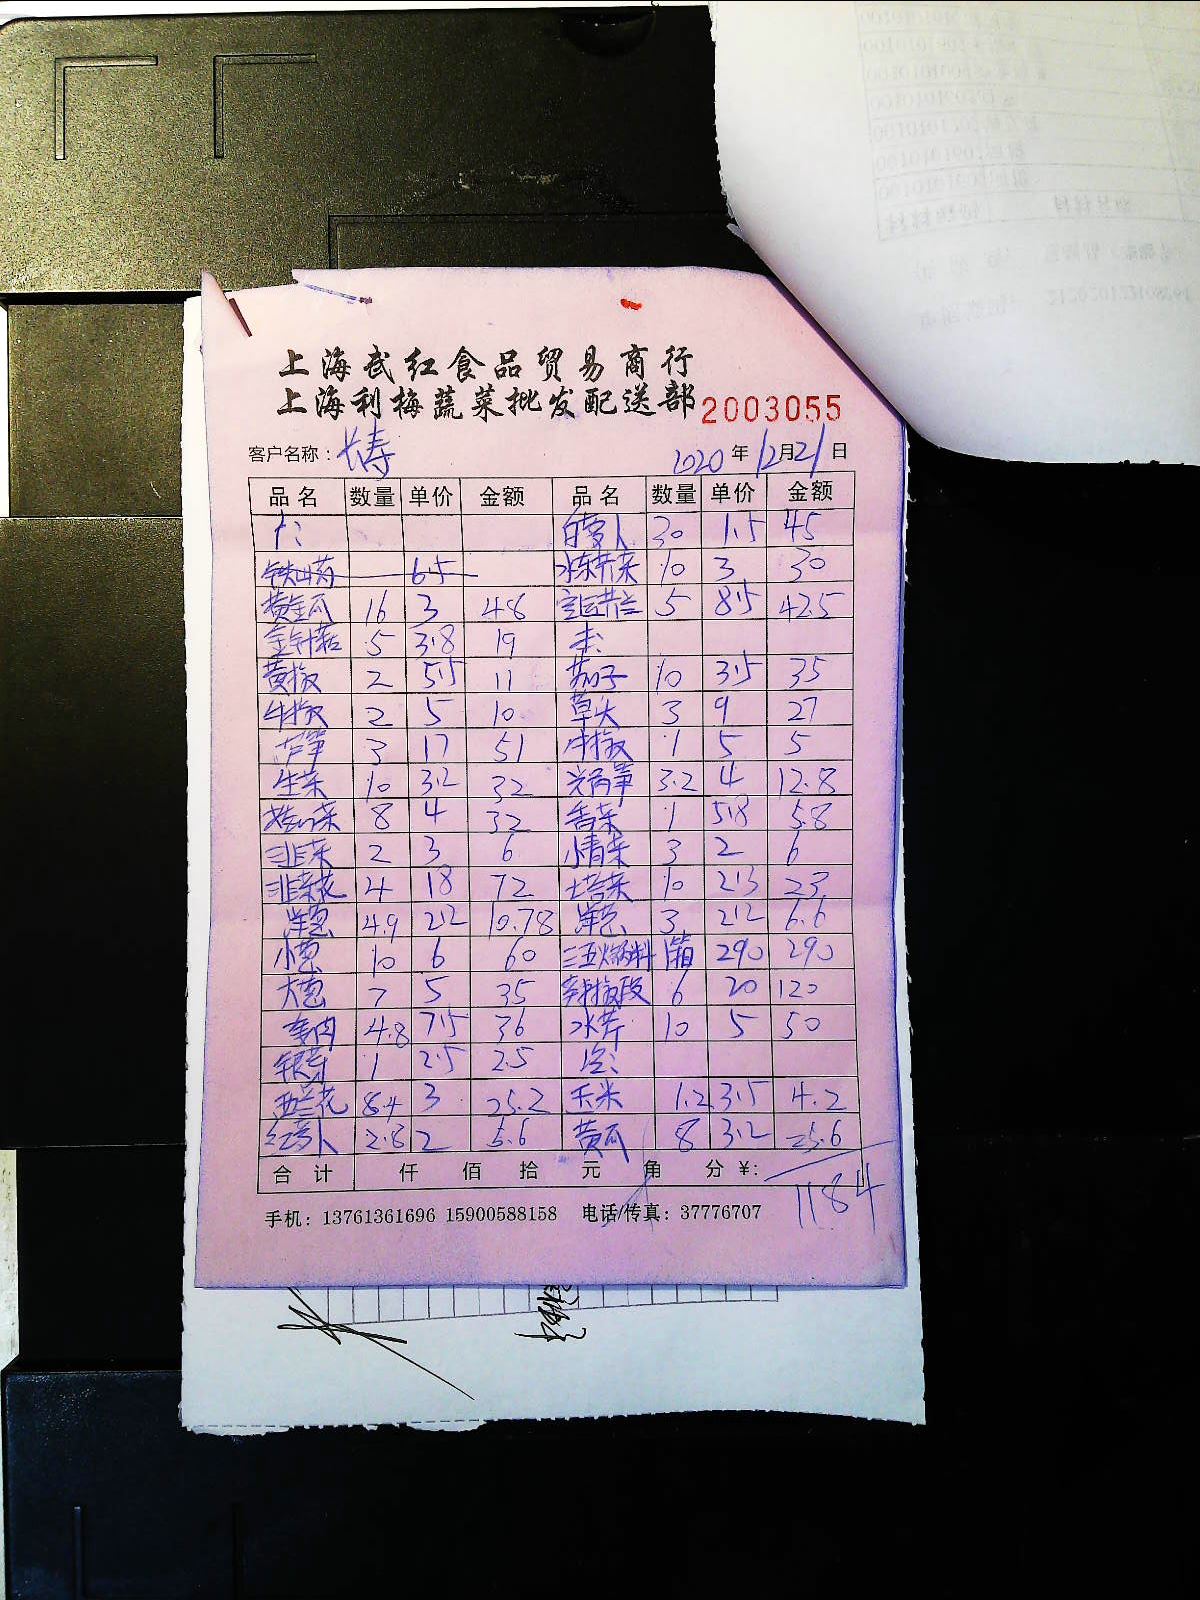 上海武红食品贸易商行
上海利梅蔬菜批发配送部 2003055
客户名称：长寿 2020年12月21日
品名 数量 单价 金额 品名 数量 单价 金额
白萝卜 30 1.5 45
铁山药 6.5 水东芥菜 10 3 30
黄金瓜 16 3 48 5 8.5 42.5
金针菇 5 3.8 19
黄椒 2 5.5 11 茄子 10 3.5 35
牛椒 2 5 10 草头 3 9 27
芦笋 3 17 51 牛椒 1 5 5
生菜 10 3.2 32 3.2 4 12.8
8 4 32 香菜 1 5.8 5.8
韭菜 2 3 6 小青菜 3 2 6
韭菜花 4 18 72 塔菜 10 2.3 23
洋葱 4.9 2.2 10.78 洋葱 3 2.2 6.6
小葱 10 6 60 三五火锅料 1箱 290 290
大葱 7 5 35 辣椒段 6 20 120
姜肉 4.8 7.5 36 水芹 10 5 50
银芽 1 2.5 2.5
西兰花 8.4 3 25.2 玉米 1.2 3.5 4.2
红萝卜 2.8 2 5.6 黄瓜 8 3.2 25.6
合计 仟 佰 拾 元 角 分 ¥: 1184
手机：13761361696 15900588158 电话/传真：37776707